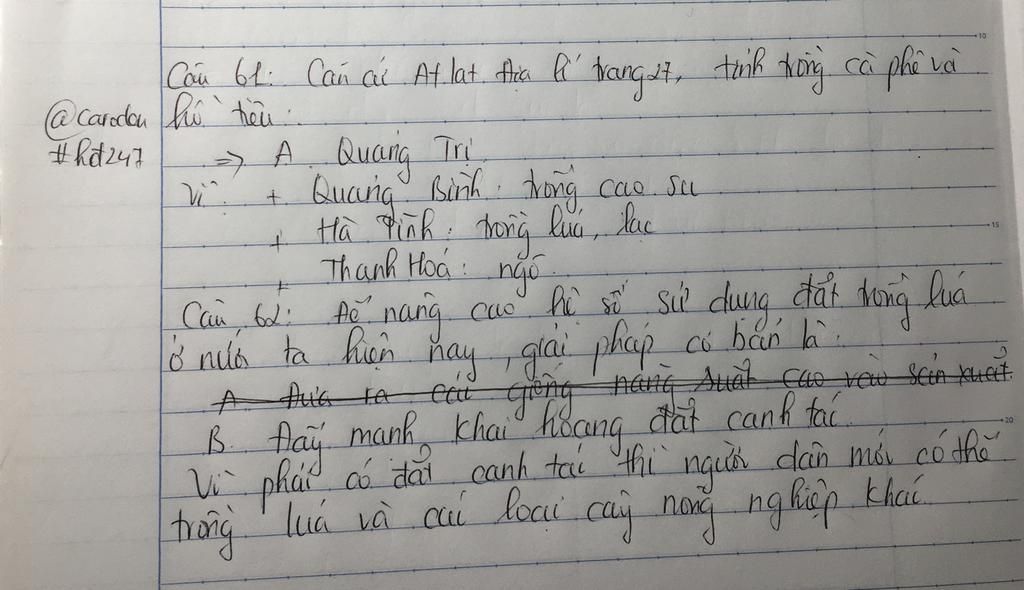 Câu 61: Căn cứ Atlat địa lí trang 27, tỉnh trồng cà phê và
@carodou hồ tiêu:
#hd247 => A. Quảng Trị
Vì: + Quảng Bình: trồng cao su
+ Hà Tĩnh: trồng lúa, lạc
+ Thanh Hoá: ngô
Câu 62: Để nâng cao hệ số sử dụng đất trồng lúa
ở nước ta hiện nay, giải pháp cơ bản là:
A. Đưa ra các giống năng suất cao vào sản xuất.
B. Đẩy mạnh khai hoang đất canh tác.
Vì phải có đất canh tác thì người dân mới có thể
trồng lúa và các loại cây nông nghiệp khác